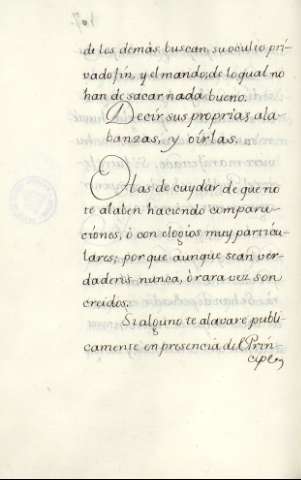 107
de los demás, buscan, su oculto pri
vado fin, y el mando, de lo qual no
han de sacar nada bueno.
Decir sus proprias ala
banzas, y oírlas.
Has de cuydar de que no
te alaben haciendo compara
ciones, ó con elogios muy particu
lares; por que aunque sean ver
daderos nunca, ó rara vez son
creidos.
Si alguno te alavare publi
camente en presencia del Prin
cipe